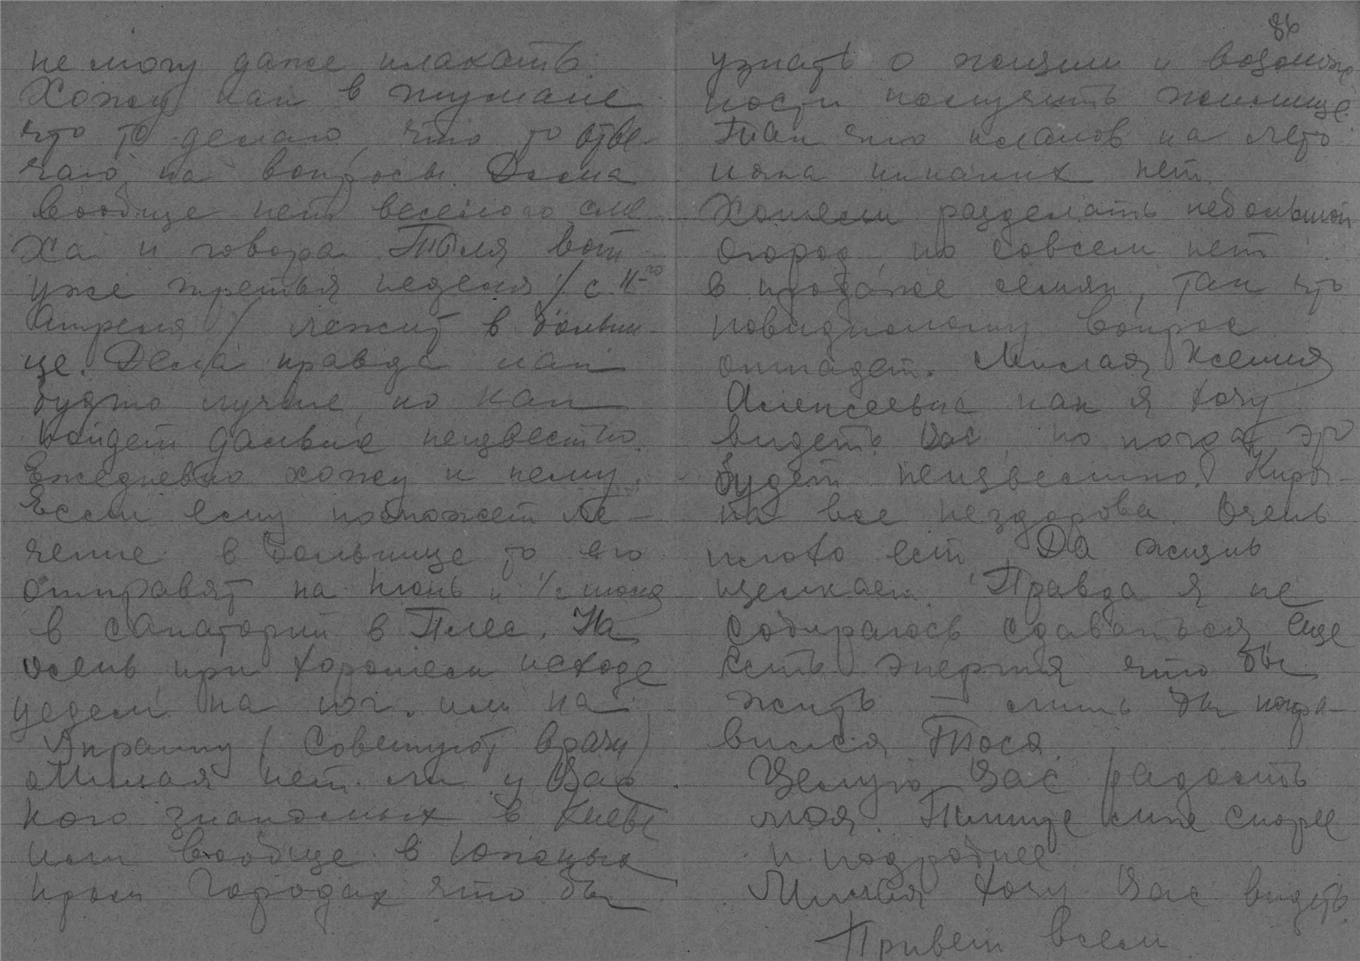 не могу даже плакать.
Хожу как в тумане
что то делаю, что то отве-
чаю на вопросы. Дома
вообще нет веселого сме
ха и говора. Толя вот
уже третья неделя / с 11-го
Апреля / лежит в больни-
це. Дела правда как
будто лучше, но как
пойдет дальше неизвестно.
Ежедневно хожу к нему.
Если ему поможет ле-
чение в больнице то его
отправят на июнь и 1/2 июля
в санаторий в Плес. На
осень при хорошем исходе
уедем на юг. или на
Украину ( Советуют врачи )
Милая нет ли у Вас
кого знакомых в Киеве
или вообще в южных
городах что бы
86
узнать о жизни и возмож
ности получить жилище.
Так что планов на лето
пока никаких нет.
Хотели разделать небольшой
огород, но совсем нет
в продаже семян, так что
повидимому вопрос
отпадет. Милая Ксения
Алексеевна как я хочу
видеть Вас, но когда это
будет неизвестно. Кироч-
ка все нездорова. Очень
плохо ест. Да жизнь
щелкает. Правда я не
собираюсь сдаваться, еще
есть энергия что бы
жить — лишь бы попра-
вился Тося
Целую Вас радость
моя. Пишите мне скорее
и подробнее
Милая хочу Вас видеть.
Привет всем